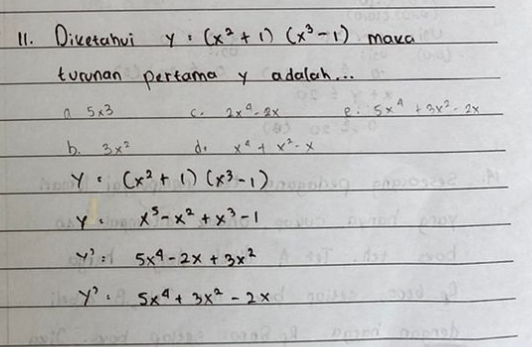 11. Diketahui y = (x² + 1) (x³ - 1) maka
turunan pertama y adalah...
a 5x3 c. 2x⁴ - 2x e. 5x⁴ + 3x² - 2x
b. 3x² d. x⁴ + x² - x
y = (x² + 1) (x³ - 1)
y = x⁵ - x² + x³ - 1
y' = 5x⁴ - 2x + 3x²
y' = 5x⁴ + 3x² - 2x